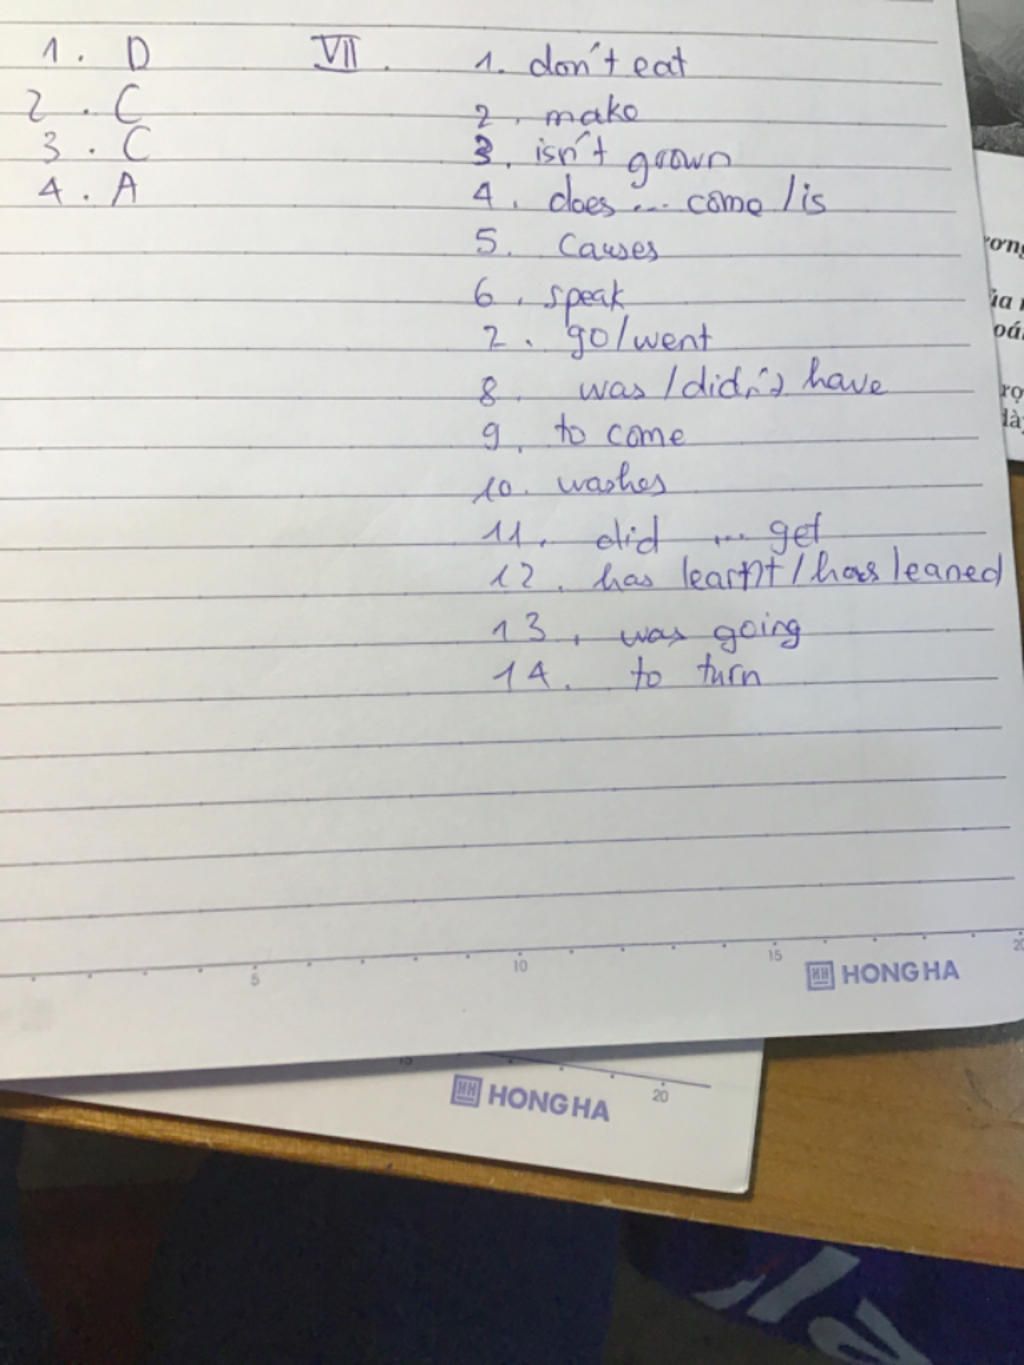 1. D
2. C
3. C
4. A
VII.
1. don't eat
2. make
3. isn't grown
4. does ... come / is
5. causes
6. speak
7. go / went
8. was / didn't have
9. to come
10. washes
11. did ... get
12. has learnt / has leaned
13. was going
14. to turn
5 10 15 20
HH HONG HA
15 20
HH HONG HA